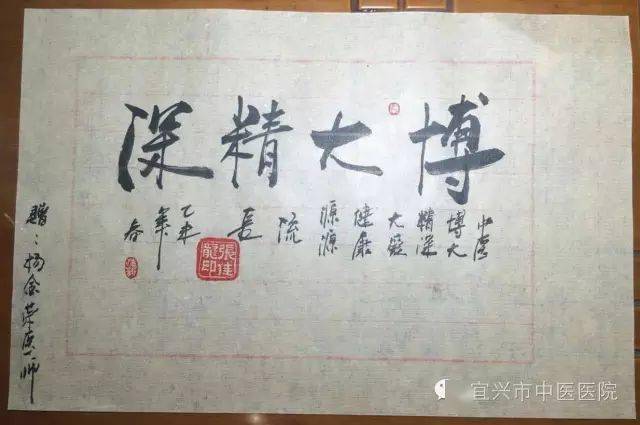 博大精深
中医
博大
精深
健康
源源
流
長
乙未
年
春
張佳龍印
贈:杨金荣医师
宜兴市中医医院